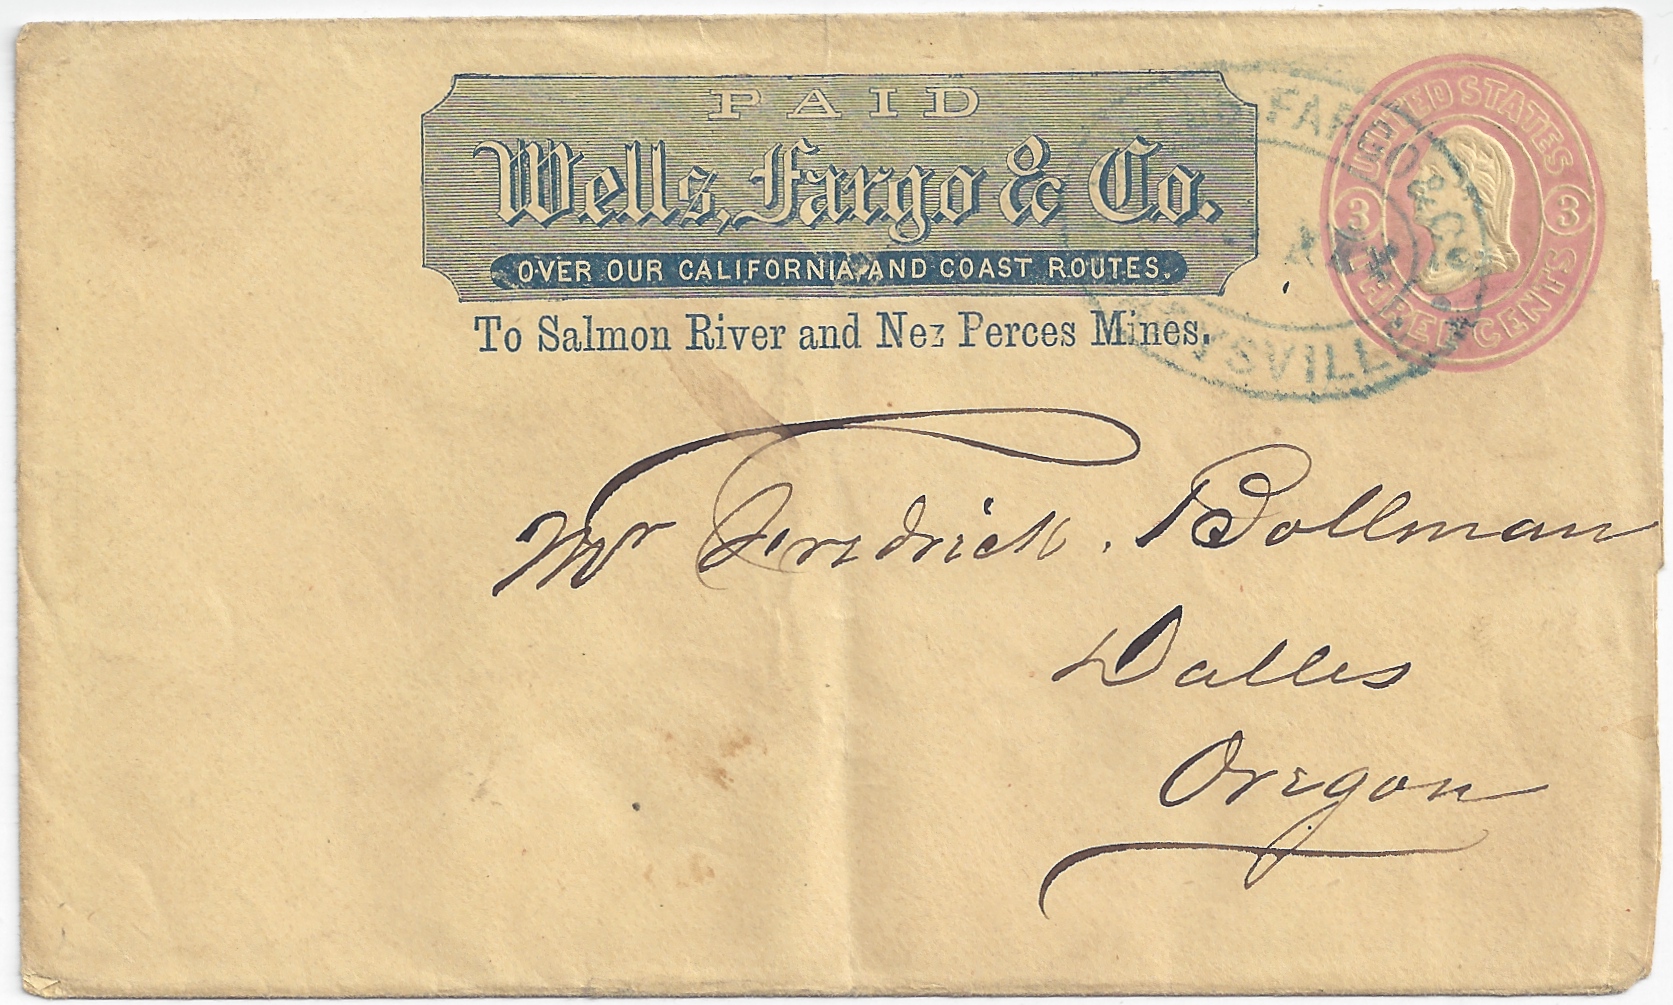 PAID
Wells, Fargo & Co.
OVER OUR CALIFORNIA AND COAST ROUTES.
To Salmon River and Nez Perces Mines.
FARGO & CO
UNITED STATES
3 3
THREE CENTS
Mr Fredrick. Bollman
Dalles
Oregon